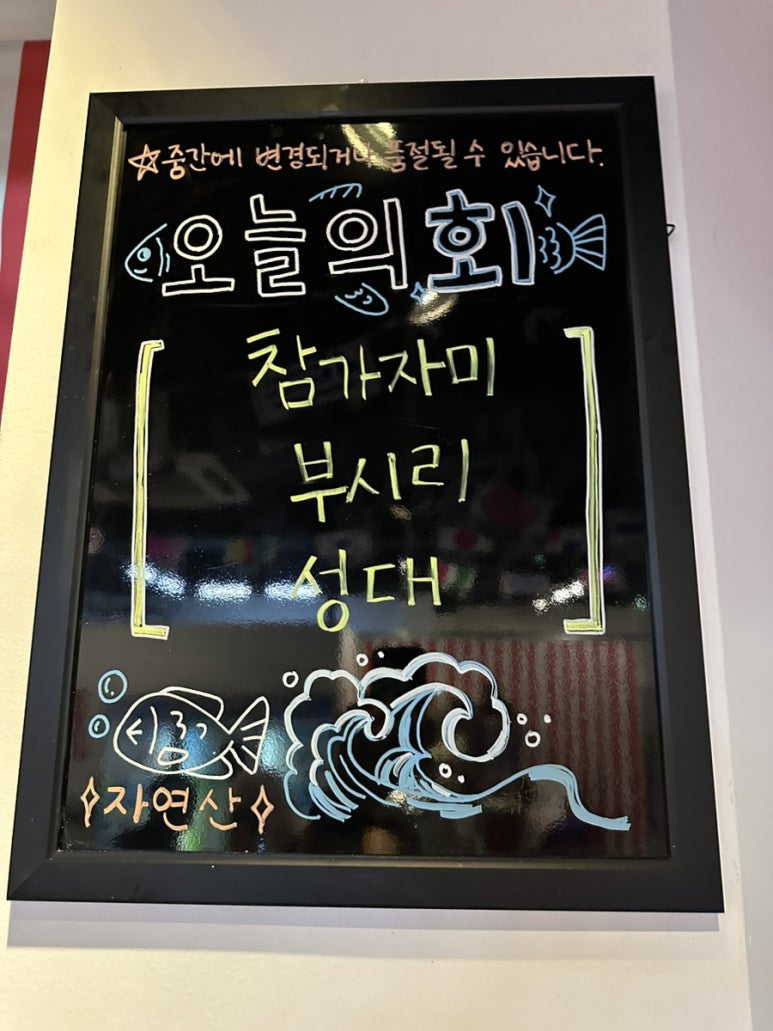 ☆중간에 변경되거나 품절될 수 있습니다.
오늘의 회
참가자미
부시리
성대
자연산